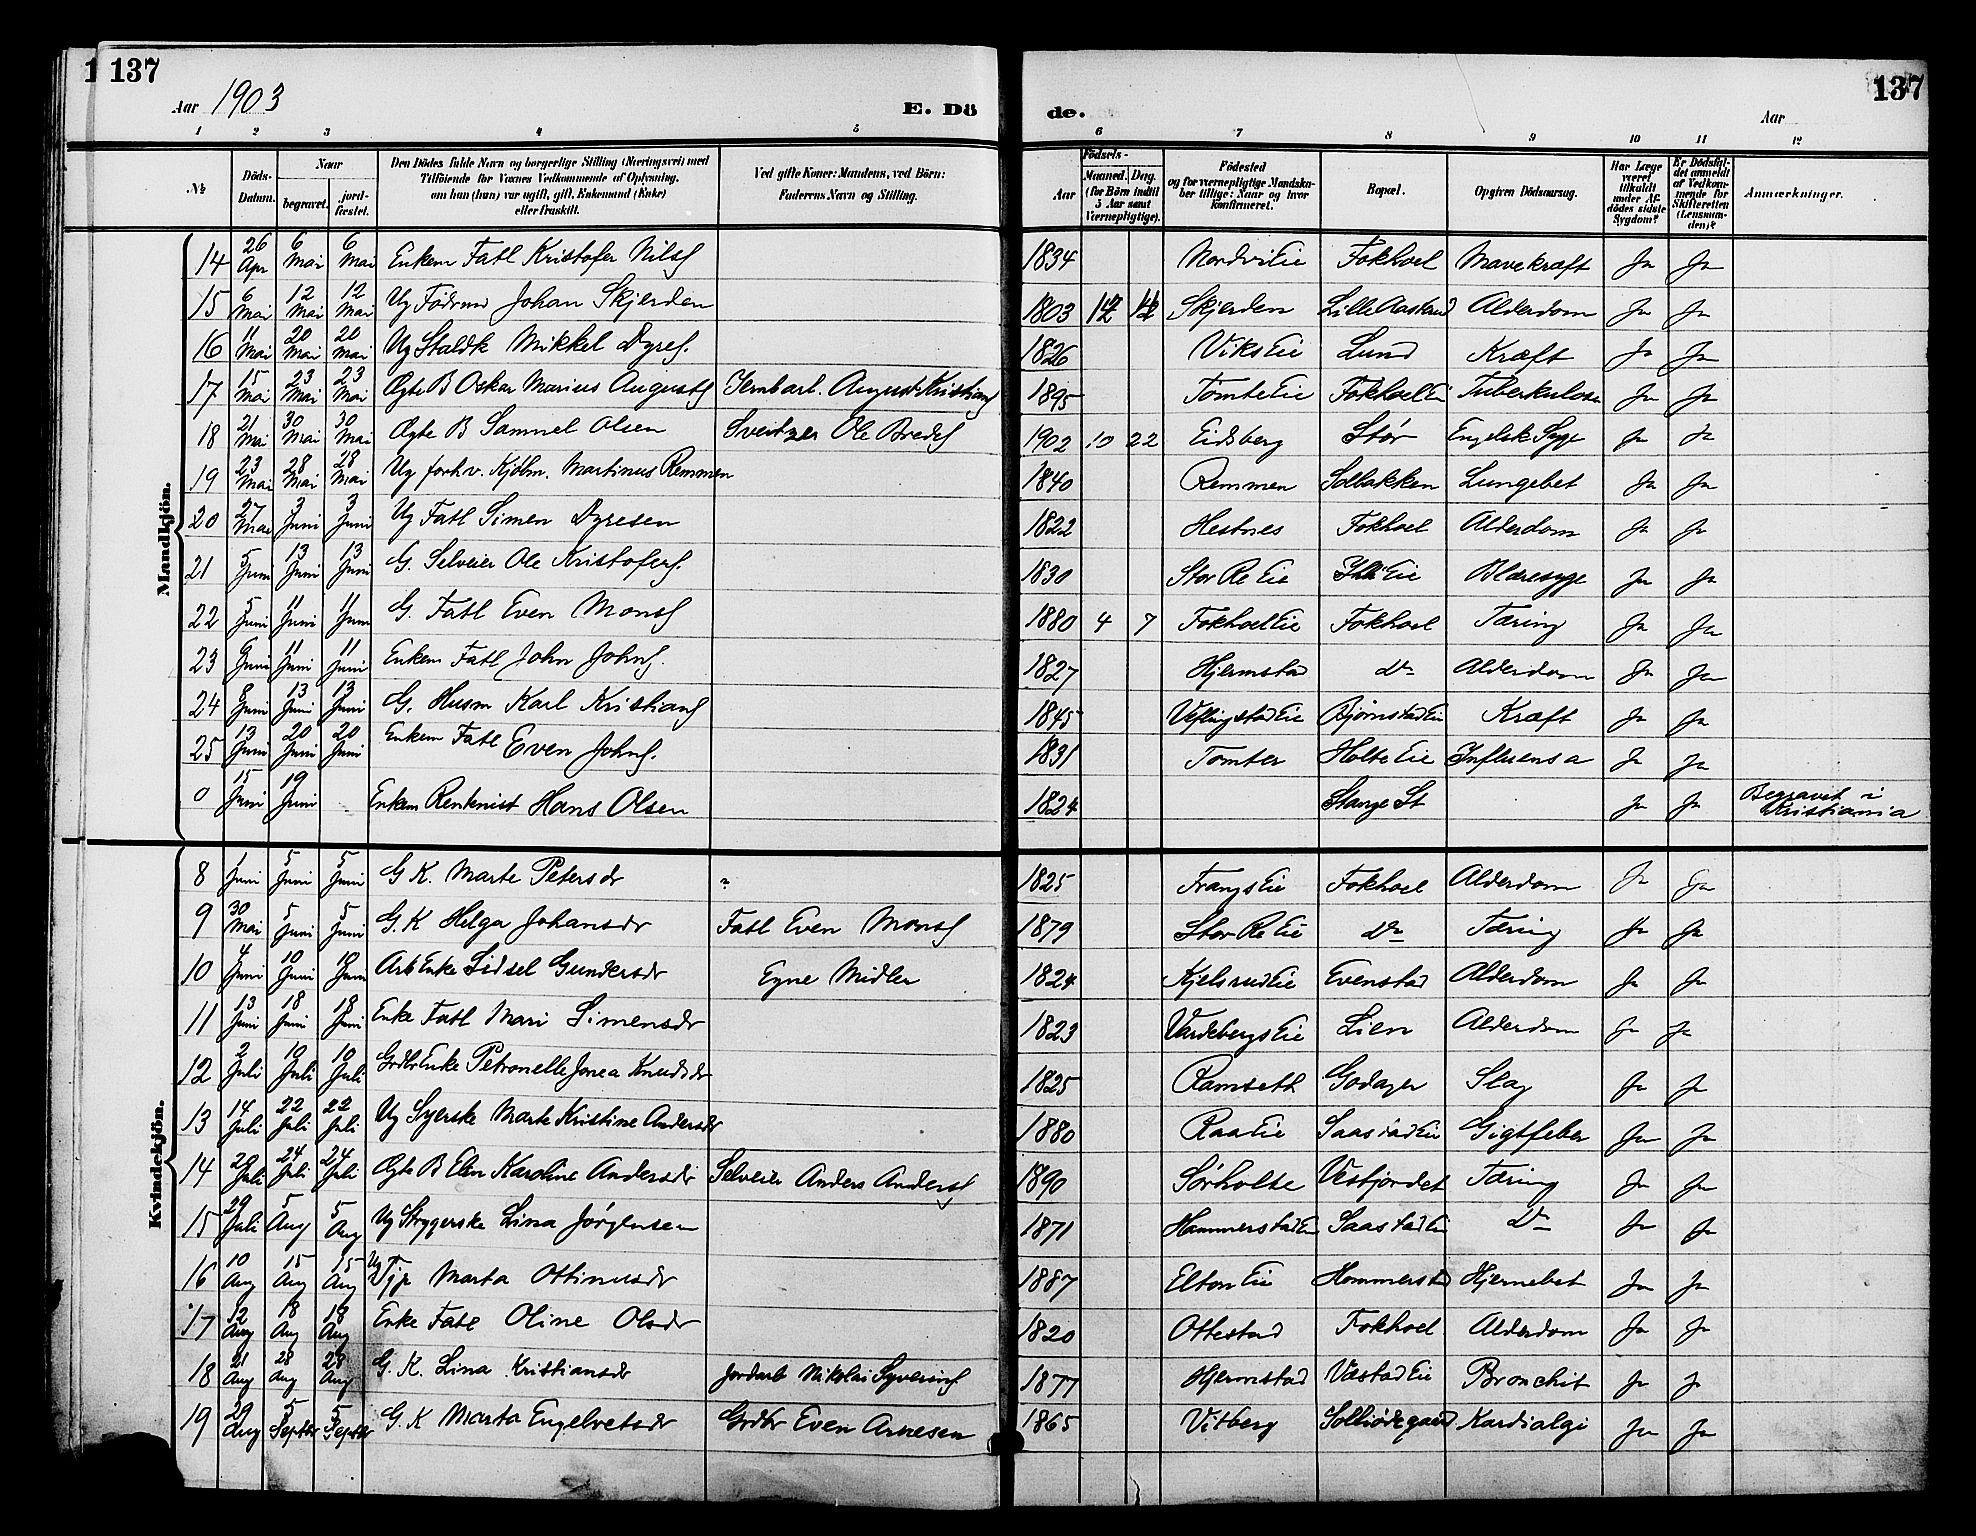 1 137
137
Aar 1903
E. Dö
de.
Aar
1 2 3 4 5 6 7 8 9 10 11 12
№
Döds-Datum.
Naar begravet. jordfæstet.
Den Dödes fulde Navn og borgerlige Stilling (Næringsvei) med Tilföiende for Voxnes Vedkommende af Oplysning, om han (hun) var ugift, gift, Enkemand (Enke) eller fraskilt.
Ved gifte Koner: Mandens, ved Börn: Faderens Navn og Stilling.
Födsels- Aar Maaned. Dag. (for Börn indtil 5 Aar samt Værnepligtige).
Födested og for værnepligtige Mandskaber tillige: Naar og hvor konfirmeret.
Bopæl.
Opgiven Dödsaarsag.
Har Læge været tilkaldt under Afdödes sidste Sygdom?
Er Dödsfaldet anmeldt af Vedkommende for Skifteretten (Lensmanden)?
Anmærkninger.
Mandkjön.
14 26 Apr 6 Mai 6 Mai Enkem Fatl Kristofer Nilss 1834 Nordvi Eie Fokhoel Mavekræft Ja Ja
15 6 Mai 12 Mai 12 Mai Ug Födrmd Johan Skjerden 1803 Skjerden Lille Aasterud Alderdom Ja Ja
16 11 Mai 20 Mai 20 Mai Ug Staldk Mikkel Dyres. 1826 Viks Eie Lund Kræft Ja Ja
17 15 Mai 23 Mai 23 Mai Ægte B Oskar Marius Augusts Jernbarb. August Kristians 1895 Tomte Eie Fokhoel Ei Tuberkulose Ja Ja
18 21 Mai 30 Mai 30 Mai Ægte B Samuel Olsen Sveitzer Ole Bredes 1902 10 22 Eidsberg Stör Engelsk Syge Ja Ja
19 23 Mai 28 Mai 28 Mai Ug forhv. Kjöbm. Martinus Remmen 1840 Remmen Solbakken Lungebet Ja Ja
20 27 Mai 3 Juni 3 Juni Ug Fatl Simen Dyresen 1822 Hestnes Fokhoel Alderdom Ja Ja
21 5 Juni 13 Juni 13 Juni G. Selveier Ole Kristofers 1830 Stor Re Eie Eie Blæresyge Ja Ja
22 5 Juni 11 Juni 11 Juni G. Fatl Even Mons 1880 4 7 Fokhoel Eie Fokhoel Tæring Ja Ja
23 6 Juni 11 Juni 11 Juni Enkem Fatl John Johns. 1827 Hjermstad Do Alderdom Ja Ja
24 8 Juni 13 Juni 13 Juni G. Husm Karl Kristians 1845 Veflingstad Eie Bjørnstad Eie Kræft Ja Ja
25 13 Juni 20 Juni 20 Juni Enkem Fatl Even Johns. 1831 Tomter Holte Eie Influensa Ja Ja
0 15 Juni 19 Juni Enkem Rentenist Hans Olsen 1824 Stange St Ja Ja Begravet i Kristiania
Kvindekjön.
8 1 Juni 5 Juni 5 Juni G K. Marte Petersdr " 1825 Frangs Eie Fokhoel Alderdom Ja Ja
9 30 Mai 5 Juni 5 Juni G. K Helga Johansdr Fatl Even Mons 1879 Stor Re Eie Do Tæring Ja Ja
10 4 Juni 10 Juni 10 Juni Arb Enke Sidsel Gundersdr Egne Midler 1824 Kjelsrud Eie Evenstad Alderdom Ja Ja
11 13 Juni 18 Juni 18 Juni Enke Fatl Mari Simensdr 1823 Vardebergs Eie Lien Alderdom Ja Ja
12 2 Juli 10 Juli 10 Juli Grdbr Enke Petronelle Jonea Knudsdr 1825 Ramseth Godager Slag Ja Ja
13 14 Juli 22 Juli 22 Juli Ug Syerske Marte Kristine Andersdr 1880 Raa Eie Saastad Eie Gigtfeber Ja Ja
14 20 Juli 24 Juli 24 Juli Ægte B Elin Karoline Andersdr Selveier Anders Anders 1890 Sørholte Vestjordet Tæring Ja Ja
15 29 Juli 5 Aug 5 Aug Ug Strygerske Lina Jørgensen 1871 Hammerstad Ei Saastad Ei Do Ja Ja
16 10 Aug 15 Aug 15 Aug Ug Tjp Marta Ottinusdr 1887 Elton Eie Hommerstad Hjernebet Ja Ja
17 12 Aug 18 Aug 18 Aug Enke Fatl Oline Olsdr 1820 Ottestad Fokhoel Alderdom Ja Ja
18 21 Aug 28 Aug 28 Aug G. K. Lina Kristiansdr Jordarb Nikolai Syverins 1877 Hjermstad Væstad Eie Bronchit Ja Ja
19 29 Aug 5 Septbr 5 Septbr G. K Marta Engelretsdr Grdbr Even Arnesen 1865 Vitberg Kardialgi Ja Ja